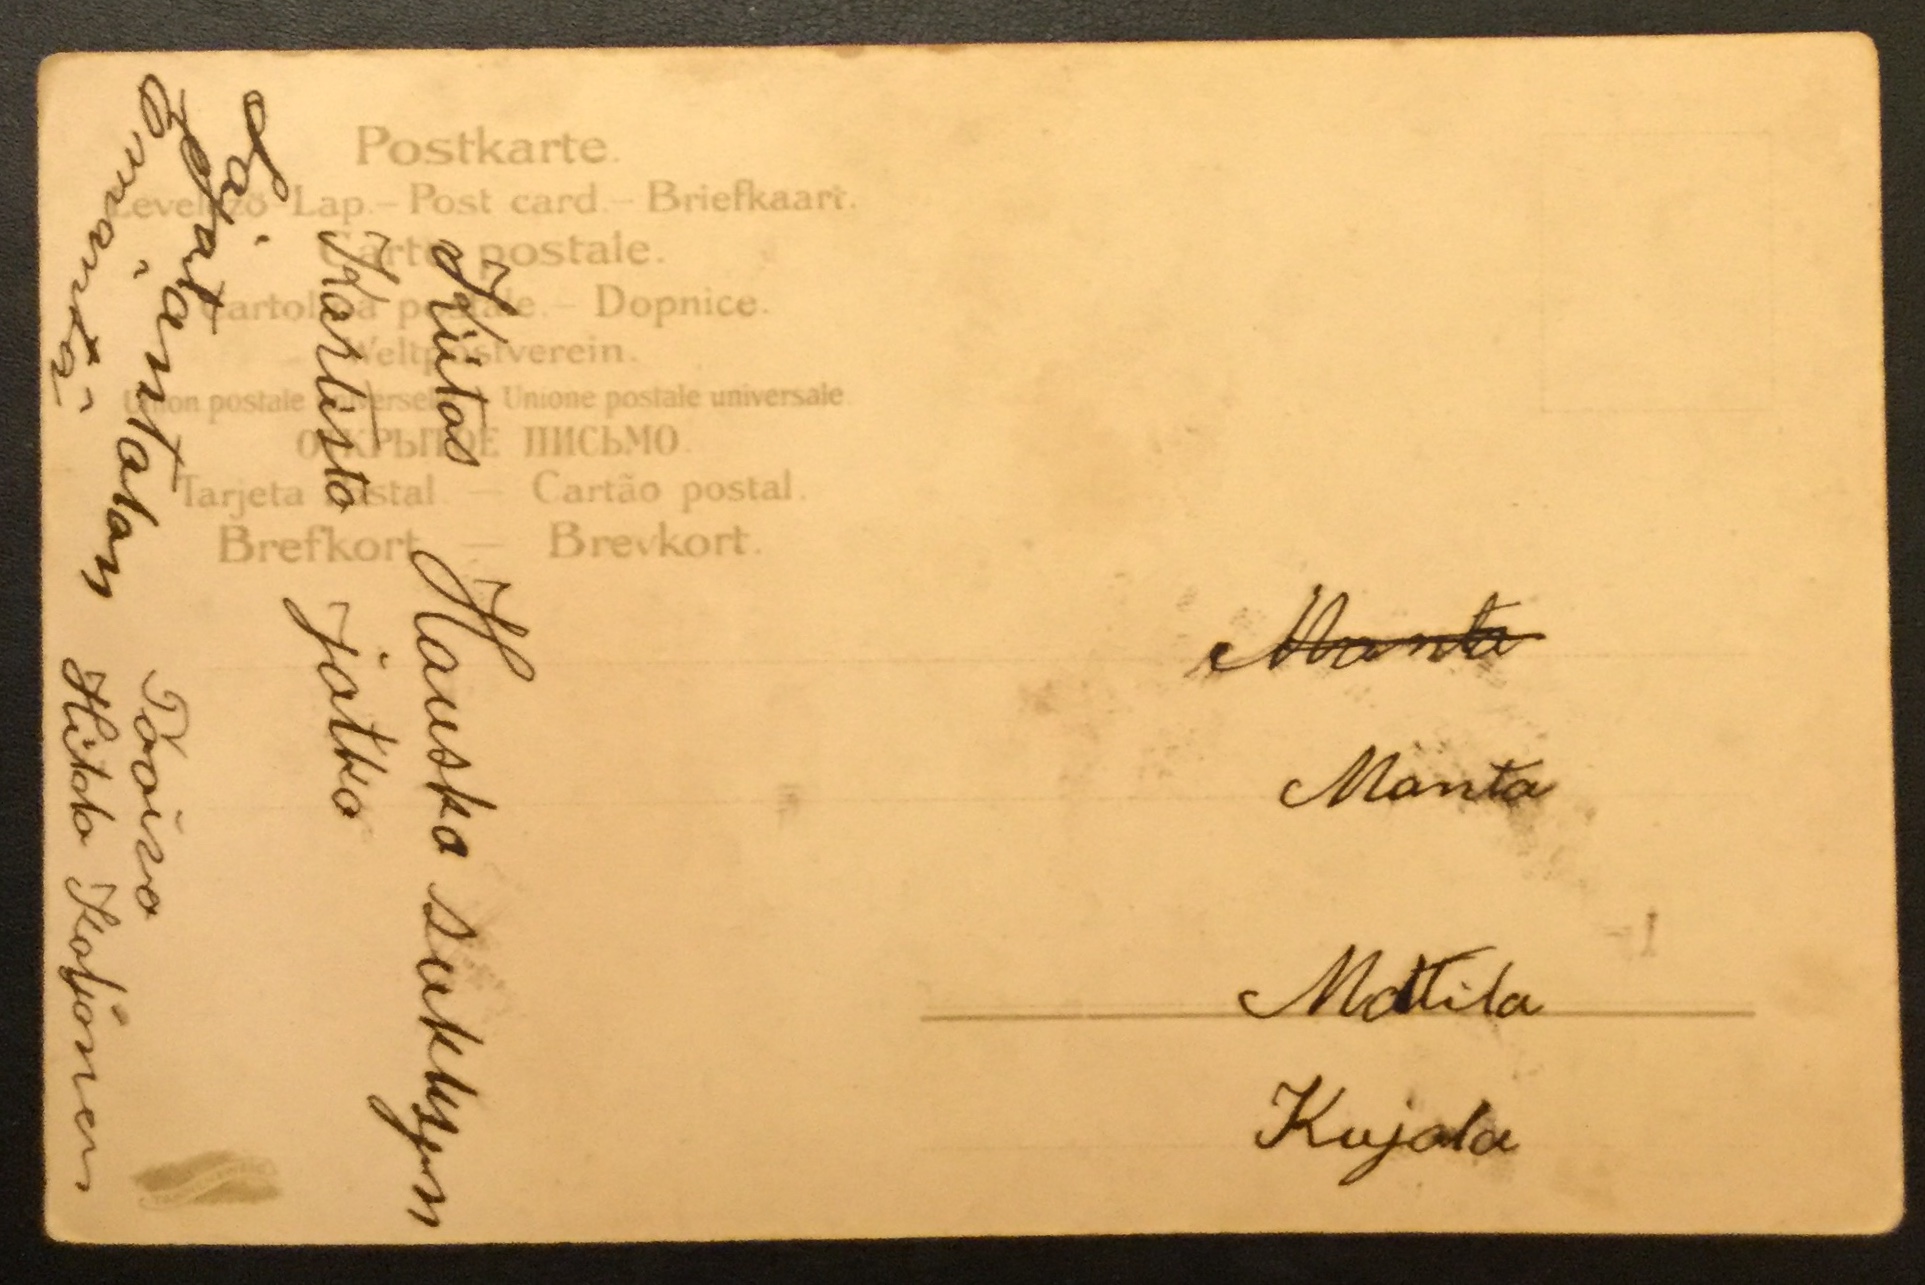 Postkarte.
Levelező-Lap.–Post card.–Briefkaart.
Carte postale.
Cartolina postale.– Dopnice.
Weltpostverein.
Union postale universelle. – Unione postale universale.
ОТКРЫТОЕ ПИСЬМО.
Tarjeta postal. — Cartão postal.
Brefkort — Brevkort.
Kiitos Hauska
jatko
Toivo
Hilda Koljonen
Manta
Manta
Mattila
Kujala